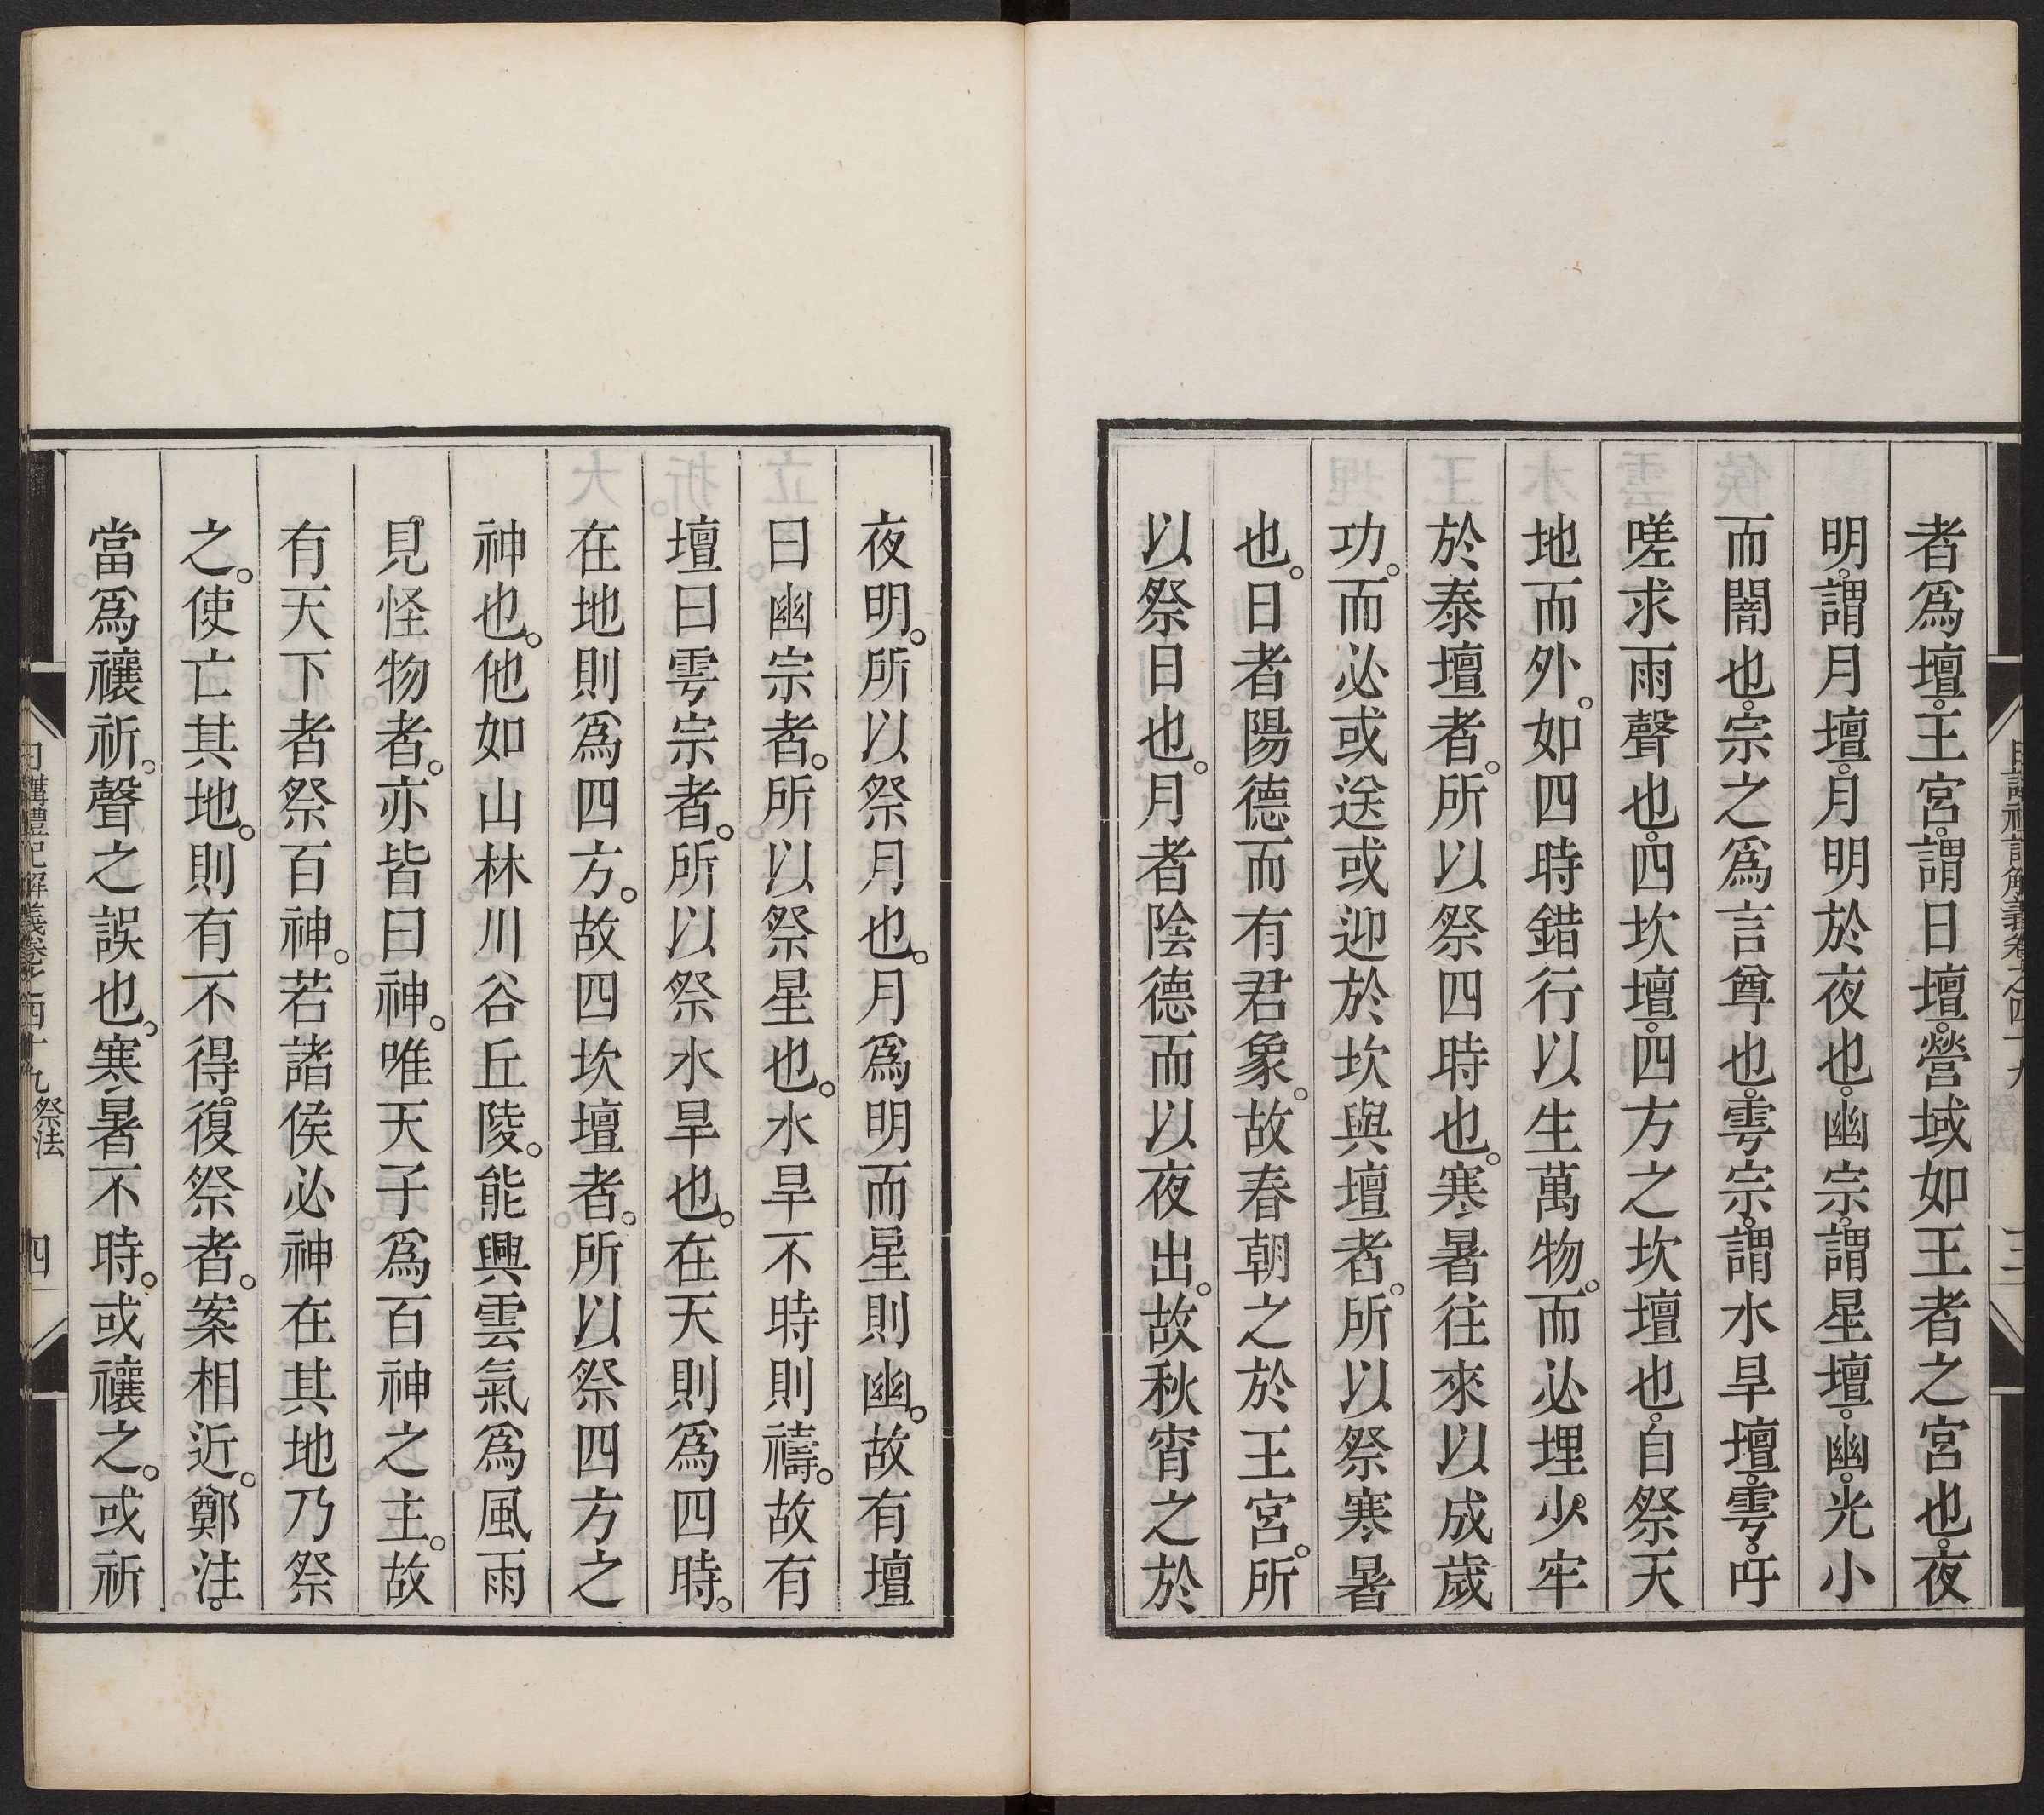 日講禮記解義卷之四十九
三
者爲壇。王宮。謂日壇。營域如王者之宮也。夜
明。謂月壇。月明於夜也。幽宗。謂星壇。幽。光小
而闇也。宗之爲言尊也。雩宗。謂水旱壇。雩。吁
嗟求雨聲也。四坎壇。四方之坎壇也。自祭天
地而外。如四時錯行以生萬物。而必埋少牢
於泰壇者。所以祭四時也。寒暑往來以成歲
功。而必或送或迎於坎與壇者。所以祭寒暑
也。日者陽德而有君象。故春朝之於王宮。所
以祭日也。月者陰德而以夜出。故秋宵之於
夜明。所以祭月也。月爲明而星則幽。故有壇
曰幽宗者。所以祭星也。水旱不時則禱。故有
壇曰雩宗者。所以祭水旱也。在天則爲四時。
在地則爲四方。故四坎壇者。所以祭四方之
神也。他如山林川谷丘陵。能興雲氣爲風雨
見怪物者。亦皆曰神。唯天子爲百神之主。故
有天下者祭百神。若諸侯必神在其地乃祭
之。使亡其地。則有不得復祭者。案相近。鄭注。
當爲禳祈。聲之誤也。寒暑不時。或禳之。或祈
日講禮記解義卷之四十九 祭法
四